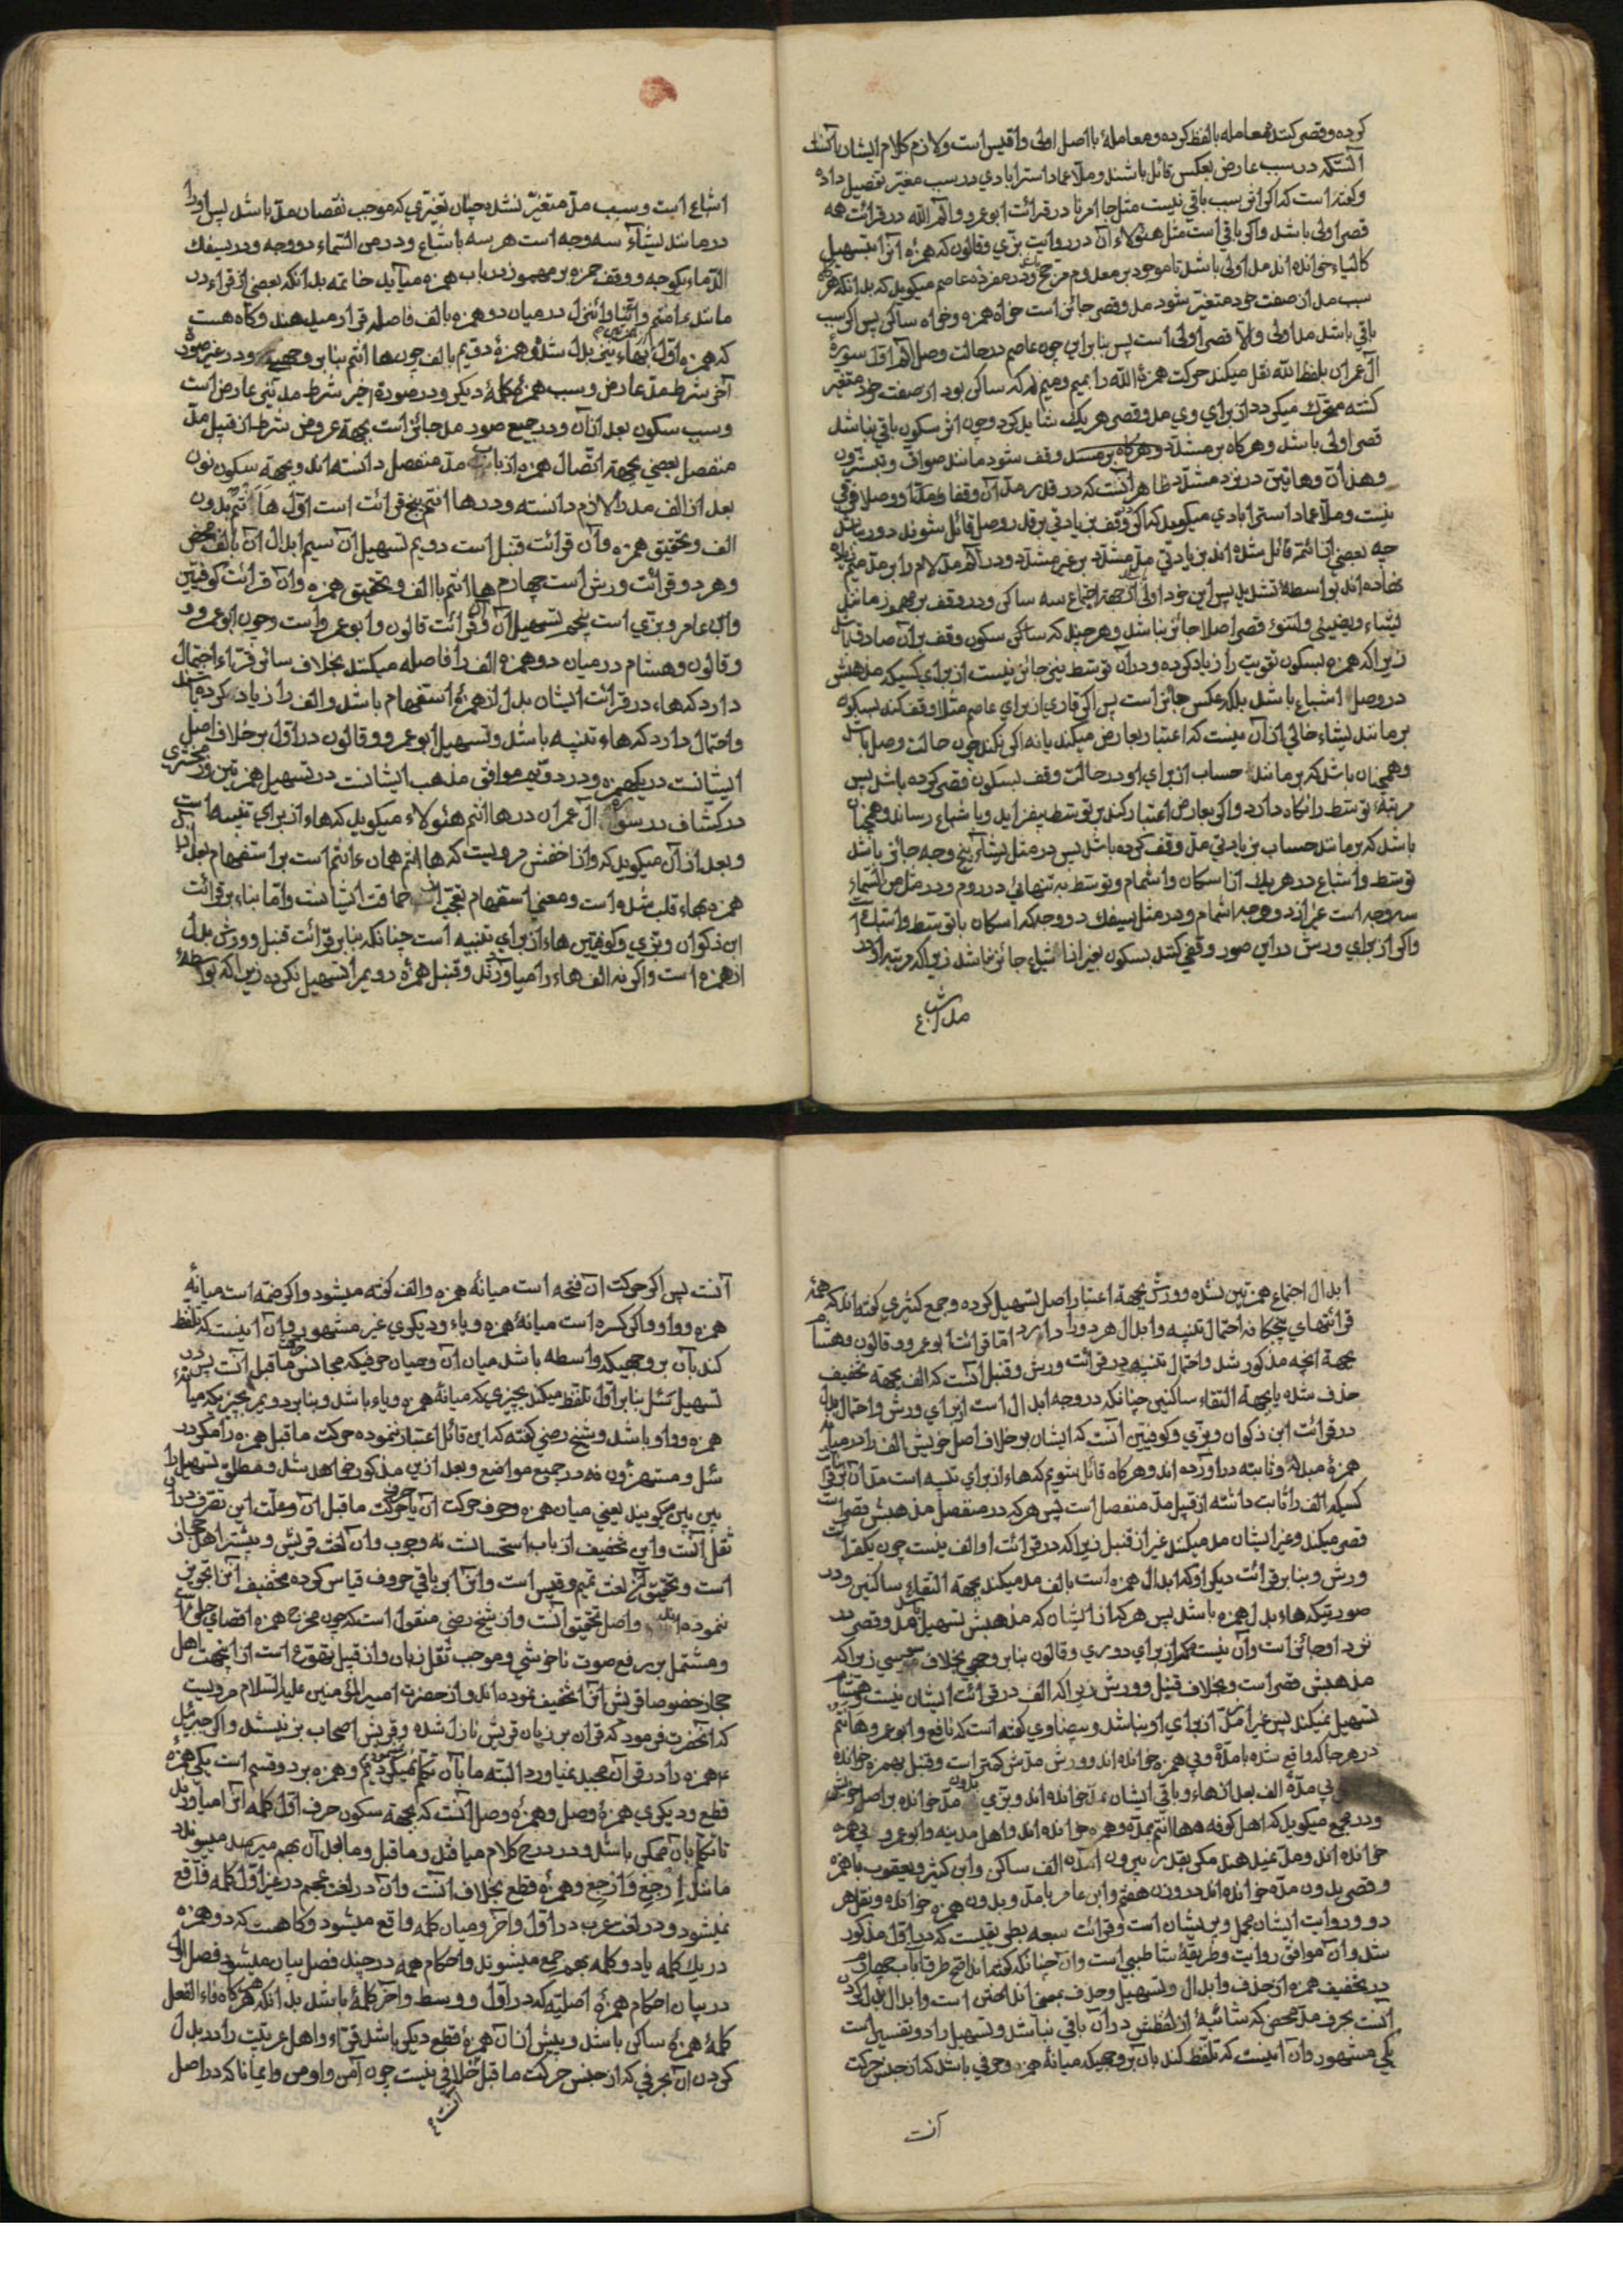 کرده و قصر کنند معامله با لفظ کرده و معامله با اصل اولی و اقیس است و لازم کلام ایشان
آنستکه در سبب عارض بعکس قائل باشند و ملا عماد استرابادی در سبب مغیر تفصیل داده
و گفته است که اگر اثر سبب باقی نیست مثل جا امرنا در قرائت ابو عمرو و الم الله در قرائت همه
قصر اولی باشد و اگر باقی است مثل هؤلاء ان در روایت بزی و قالون که همزه را تسهیل
کالیاء خوانده اند مد اولی باشد تا موجود بر معدوم مرجح و در مفرده عاصم میگوید که بدانکه هرگاه
سبب مد از صفت خود متغیر شود مد و قصر جائز است خواه همزه و خواه ساکن پس اگر سبب
باقی باشد مد اولی والا قصر اولی است پس بنابراین چون عاصم در حالت وصل الم اول سورهٔ
آل عمران بلفظ الله نقل میکند حرکت همزهٔ الله را بمیم و میم که ساکن بود از صفت خود متغیر
گشته متحرک میگردد از برای وی مد و قصر هریک شاید کرد و چون اثر سکون باقی نباشد
قصر اولی باشد و هرگاه بر مشدد وقف شود مانند صواف و تبشرون
و هذان و هاتین در نزد مشدد ظاهر آنست که در قدر مد آن وقفا و وصلا فرقی
نیست و ملا عماد استرابادی میگوید که اگر در وقف بزیادتی بر قدر وصل قائل شوند دور نباشد
چه بعضی از ائمه قائل شده اند بزیادتی مد مشدد بر غیر مشدد و در الم مد لام را بر مد میم زیاده
نهاده اند بواسطه تشدید پس این خود اولی از جهة اجتماع سه ساکن و در وقف بر مهموز مانند
یشاء و یضیئ و لتنوء قصر اصلا جائز نباشد و هر چند که ساکن سکون وقف بر آن صادق باشد
زیرا که همزه بسکون تقویت را زیاد کرده و در آن توسط نیز جائز نیست از برای کسیکه مذهبش
در وصل اشباع باشد بلکه عکس جائز است پس اگر قاری از برای عاصم مثلا وقف کند بسکون
بر مانند یشاء خالی از آن نیست که اعتبار بعارض میکند یا نه اگر نکند چون حالت وصل باشد
و همچنان باشد که بر مانند حساب از برای او در حالت وقف بسکون قصر کرده باشد پس
مرتبهٔ توسط را نگاه دارد و اگر بعارض اعتبار کند بر توسط بیفزاید و باشباع رساند و همچنان
باشد که بر مانند حساب بزیادتی مد وقف کرده باشد پس در مثل یشاء پنج وجه جائز باشد
توسط و اشباع در هریک از اسکان و اشمام و توسط به تنهائی در روم و در مثل من السماء
سه وجه است غیر از دو وجه اشمام و در مثل یسفک دو وجه که اسکان با توسط و اشباع
و اگر از برای ورش در این صور وقف کنند بسکون بغیر از اشباع جائز نباشد زیرا که مرتبه او در
مد
اشباع است و سبب مد متغیر نشده چنان تغیری که موجب نقصان مد باشد پس او را
در مانند یشاء سه وجه است هر سه باشباع و در من السماء دو وجه و در یسفک
الدماء یکوجه و وقف حمزه بر مهموز در باب همزه میآید خاتمه بدانکه بعضی از قراء در
مانند ءامنتم وائنا وائنزل در میان دو همزه بالف فاصله قرار میدهند و گاه هست
که همزه اول بهاء نیز بدل شده و همزهٔ دویم بالف چون ها انتم بنا بر وجهی و در غیر صورة
آخر شرط مد عارض و سبب همزهٔ کلمهٔ دیگر و در صورة اخیر شرط مد نیز عارض است
و سبب سکون بعد از آن و در جمیع صور مد جائز است بجهة عروض شرط از قبیل مد
منفصل بعضی بجهة اتصال همزه از باب مد منفصل دانسته اند و بجهة سکون نون
بعد از الف مد را لازم دانسته و در ها انتم پنج قرائت است اول ها انتم بدون
الف و تحقیق همزه و آن قرائت قنبل است دویم تسهیل آن سیم ابدال آن بالف محض
و هر دو قرائت ورش است چهارم ها انتم با الف و تحقیق همزه و آن قرائت کوفیین
و ابن عامر و بزی است پنجم تسهیل آن و آن قرائت قالون و ابو عمرو است و چون ابو عمرو
و قالون و هشام در میان دو همزه الف را فاصله میکنند بخلاف سائر قراء احتمال
دارد که هاء در قرائت ایشان بدل از همزهٔ استفهام باشد و الف را زیاد کرده باشند
و احتمال دارد که هاء تنبیه باشد و تسهیل ابو عمرو و قالون در اول بر خلاف اصل
ایشانست در یکهمزه و در دویم موافق مذهب ایشانست در تسهیل همزتین و زمخشری
در کشاف در سورهٔ آل عمران در ها انتم هؤلاء میگوید که هاء از برای تنبیه است
و بعد از آن میگوید که و از اخفش مرویست که ها انتم همان ءانتم است بر استفهام پس
همزه بهاء قلب شده است و معنی استفهام تعجب از حماقت ایشانست و اما بناء بر قرائت
ابن ذکوان و بزی و کوفیین هاء از برای تنبیه است چنانکه بنا بر قرائت قنبل و ورش بدل
از همزه است و اگر نه الف هاء را میاوردند و قنبل همزه دویم را تسهیل نکرده زیرا که بواسطهٔ
ابدال اجتماع همزتین نشده و ورش بجهة اعتبار اصل تسهیل کرده و جمع کثیری گفته اند که همهٔ
قرائتهای پنجگانه احتمال تنبیه و ابدال هر دو را دارد اما قرائت ابو عمرو و قالون و هشام
بجهة آنچه مذکور شد و احتمال تنبیه در قرائت ورش و قنبل آنست که الف بجهة تخفیف
حذف شده یا بجهة التقاء ساکنین چنانکه در وجه ابدال است از برای ورش و احتمال بدل
در قرائت ابن ذکوان و بزی و کوفیین آنست که ایشان بر خلاف اصل خویش الف را در میانه
همزهٔ مبدله و ثابته در آورده اند و هرگاه قائل شویم که هاء از برای تنبیه است مد آن نزد
کسیکه الف را ثابت داشته از قبیل مد منفصل است پس هر که در منفصل مذهبش قصر است
قصر میکند و غیر ایشان مد میکنند غیر از قنبل زیرا که در قرائت او الف نیست چون یکقرائت
ورش و بنا بر قرائت دیگر او که ابدال همزه است بالف مد میکند بجهة التقاء ساکنین و در
صورتیکه هاء بدل همزه باشد پس هر که از ایشان که مذهبش تسهیل باشد مد و قصر در
نزد او جائز است و آن نیست مگر از برای دوری و قالون بنا بر وجهی بخلاف سوسی زیرا که
مذهبش قصر است و بخلاف قنبل و ورش زیرا که الف در قرائت ایشان نیست و هشام
تسهیل نمیکند پس غیر از مد از برای او نباشد و بیضاوی گفته است که نافع و ابو عمرو ها انتم
در هر جا که واقع شده با مد و بی همزه خوانده اند و ورش مدش کمتر است و قنبل بهمزه خوانده
بی مدهٔ الف بعد از هاء و باقی ایشان بمد خوانده اند و بزی بدون مد خوانده بر اصل خویش
و در مجمع میگوید که اهل کوفه ها انتم بمد و همزه خوانده اند و اهل مدینه و ابو عمرو بی همزه
خوانده اند و مد نمیدهند مگر بقدر بیرون آمدن الف ساکن و ابن کثیر و یعقوب با همزه
و قصر بدون مد خوانده اند در وزن هعنتم و ابن عامر با مد و بدون همزه خوانده و نقل هر
دو روایت ایشان مجمل و پریشان است و قرائت سبعه بطریقیست که در اول مذکور
شد و آن موافق روایت و طریقهٔ شاطبی است و آن چنانکه گفته اند اصح طرق باب چهارم
در تخفیف همزه از حذف و ابدال و تسهیل و حذف بمعنی انداختن است و ابدال بدل کردن
آنست بحرف مد محض که شائبهٔ از لفظش در آن باقی نباشد و تسهیل را دو تفسیر است
یکی مشهور و آن آنست که تلفظ کنند بآن بر وجهیکه میانهٔ همزه و حرفی باشد که از جنس حرکت
آنست
آنست پس اگر حرکت آن فتحه است میانهٔ همزه و الف گفته میشود و اگر ضمه است میانهٔ
همزه و واو و اگر کسره است میانهٔ همزه و یاء و دیگری غیر مشهور و آن آنست که تلفظ
کنند بآن بر وجهیکه واسطه باشد میان آن و میان حرفیکه مجانس حرکت ما قبل آنست پس در
تسهیل سئل بنا بر اول تلفظ میکند بچیزی که میانهٔ همزه و یاء باشد و بنا بر دویم بچیزیکه میانهٔ
همزه و واو باشد و شیخ رضی گفته که این قائل اعتبار نموده حرکت ما قبل همزه را مگر در
سئل و مستهزؤن نه در جمیع مواضع و بعد از این مذکور خواهد شد و مطلق تسهیل را
بین بین میگویند یعنی میان همزه و حرف حرکت آن یا حرف حرکت ما قبل آن و علت این تصرف در آن
ثقل آنست و این تخفیف از باب استحسانست نه وجوب و آن لغت قریش و بیشتر اهل حجاز
است و تحقیق آن لغت تمیم و قیس است و آنرا بر باقی حروف قیاس کرده تخفیف آنرا تجویز
ننموده اند و اصل تحقیق آنست و از شیخ رضی منقول است که چون مخرج همزه اقصای حلق است
و مشتمل بر رفع صوت ناخوشی و موجب ثقل زبان و از قبیل تهوع است از اینجهت اهل
حجاز خصوصا قریش آنرا تخفیف نموده اند و از حضرت امیر المؤمنین علیه السلام مرویست
که آنحضرت فرمود که قرآن بر زبان قریش نازل شده و قریش اصحاب بز نیستند و اگر جبرئیل
همزه را در قرآن مجید نمیاورد البته ما بآن تکلم نمیکردیم و همزه بر دو قسم است یکی همزه
قطع و دیگری همزهٔ وصل و همزهٔ وصل آنست که بجهة سکون حرف اول کلمه آنرا میاورند
تا تکلم بآن ممکن باشد و در درج کلام میافتد و ما قبل و ما بعد آن بهم میپیوندد
مانند ارجع و ازجع و همزهٔ قطع بخلاف آنست و آن در لغت عجم در غیر اول کلمه واقع
نمیشود و در لغت عرب در اول و آخر و میان کلمه واقع میشود و گاهست که دو همزه
در یک کلمه یا دو کلمه بهم جمع میشوند و احکام همه در چند فصل بیان میشود فصل اول
در بیان احکام همزهٔ اصلیه که در اول و وسط و آخر کلمهٔ باشد بدانکه هرگاه فاء الفعل
کلمهٔ همزهٔ ساکن باشد و پیش از آن همزهٔ قطع دیگر باشد قراء و اهل عربیت را در بدل
کردن آن بحرفی که از جنس حرکت ما قبل خلافی نیست چون آمن و اومن و ایمانا که در اصل